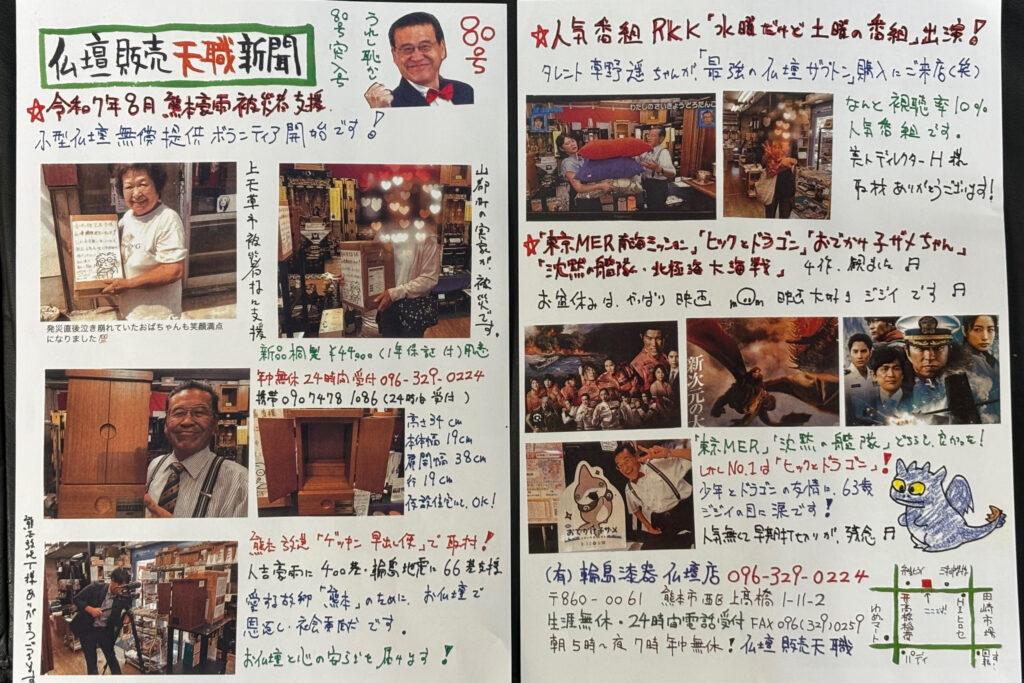 仏壇販売天職新聞
80号突入号
うれし恥ずかし
80号
☆令和7年8月 熊本豪雨被災者支援
小型仏壇無償提供ボランティア開始です!
上天草市被災者様に支援
山都町の実家が被災です。
発災直後泣き崩れていたおばちゃんも笑顔満点
になりました
新品桐製 ¥44,000 (1年保証付)用意
年中無休24時間受付 096-329-0224
携帯 090 7478 1086 (24時間受付)
高さ34cm
本体幅19cm
扉開幅38cm
行19cm
仮設住宅にOK!
熊本放送「ゲツキン早出し便」で取材!
人吉豪雨に400巻・輪島地震に66巻支援
愛する故郷「熊本」のために、お仏壇で
恩返し・社会貢献です。
お仏壇と心の安らぎを届けます!
☆人気番組 RKK「水曜だけど土曜の番組」出演!
タレント草野遥ちゃんが、「最強の仏壇ザブトン」購入にご来店(笑)
わたしのさいきょうどろだんご
なんと視聴率10%
人気番組です。
美人ディレクターH様
取材ありがとうございます!
☆「東京MER 南海ミッション」「ヒックとドラゴン」「おでかけ子ザメちゃん」
「沈黙の艦隊・北極海大海戦」 4作、観ました
お盆休みは、やっぱり映画 映画大好きジジイです
新次元の
「東京MER」「沈黙の艦隊」どちらも、良かったな!
しかしNo.1は「ヒックとドラゴン」!
少年とドラゴンの友情に、63歳
ジジイの目に涙です!
人気無くて早期打ち切りが、残念
おでかけ子ザメ
(有)輪島漆器仏壇店 096-329-0224
〒860-0061 熊本市西区上高橋1-11-2
生涯無休・24時間電話受付 FAX 096(329)0259
朝5時〜夜7時年中無休! 仏壇販売天職
ここです!
高橋稲荷
ゆめマート
ヒロセ
田崎市場